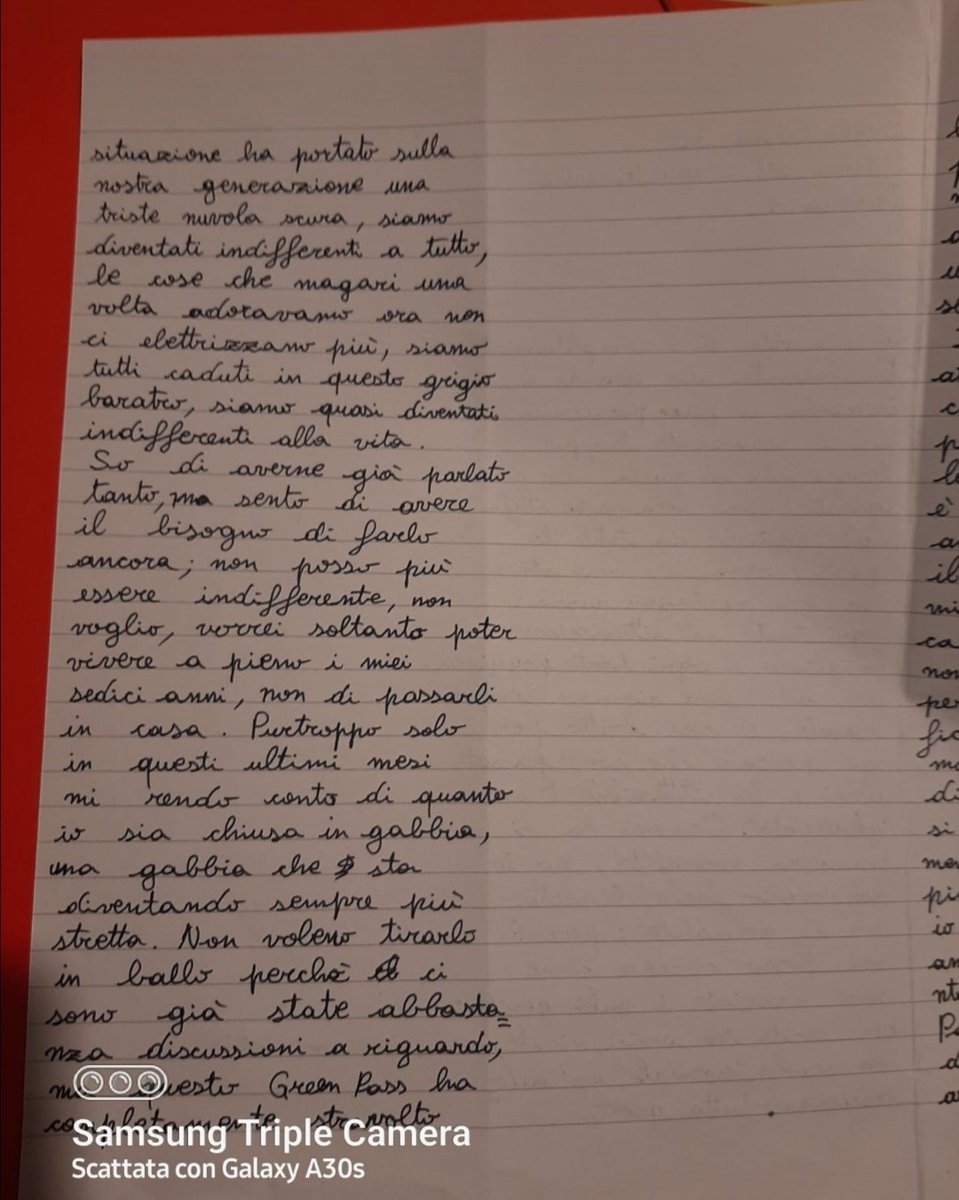 situazione ha portato sulla
nostra generazione una
triste nuvola scura, siamo
diventati indifferenti a tutto,
le cose che magari una
volta adoravamo ora non
ci elettrizzano più, siamo
tutti caduti in questo grigio
baratro, siamo quasi diventati
indifferenti alla vita.
So di averne già parlato
tanto, ma sento di avere
il bisogno di farlo
ancora; non posso più
essere indifferente, non
voglio, vorrei soltanto poter
vivere a pieno i miei
sedici anni, non di passarli
in casa. Purtroppo solo
in questi ultimi mesi
mi rendo conto di quanto
io sia chiusa in gabbia,
una gabbia che sta
diventando sempre più
stretta. Non voleno tirarlo
in ballo perchè ci
sono già state abbasta=
nza discussioni a riguardo,
ma questo Green Pass ha
completamente stravolto
Samsung Triple Camera
Scattata con Galaxy A30s
è
il
ca
di
si
io